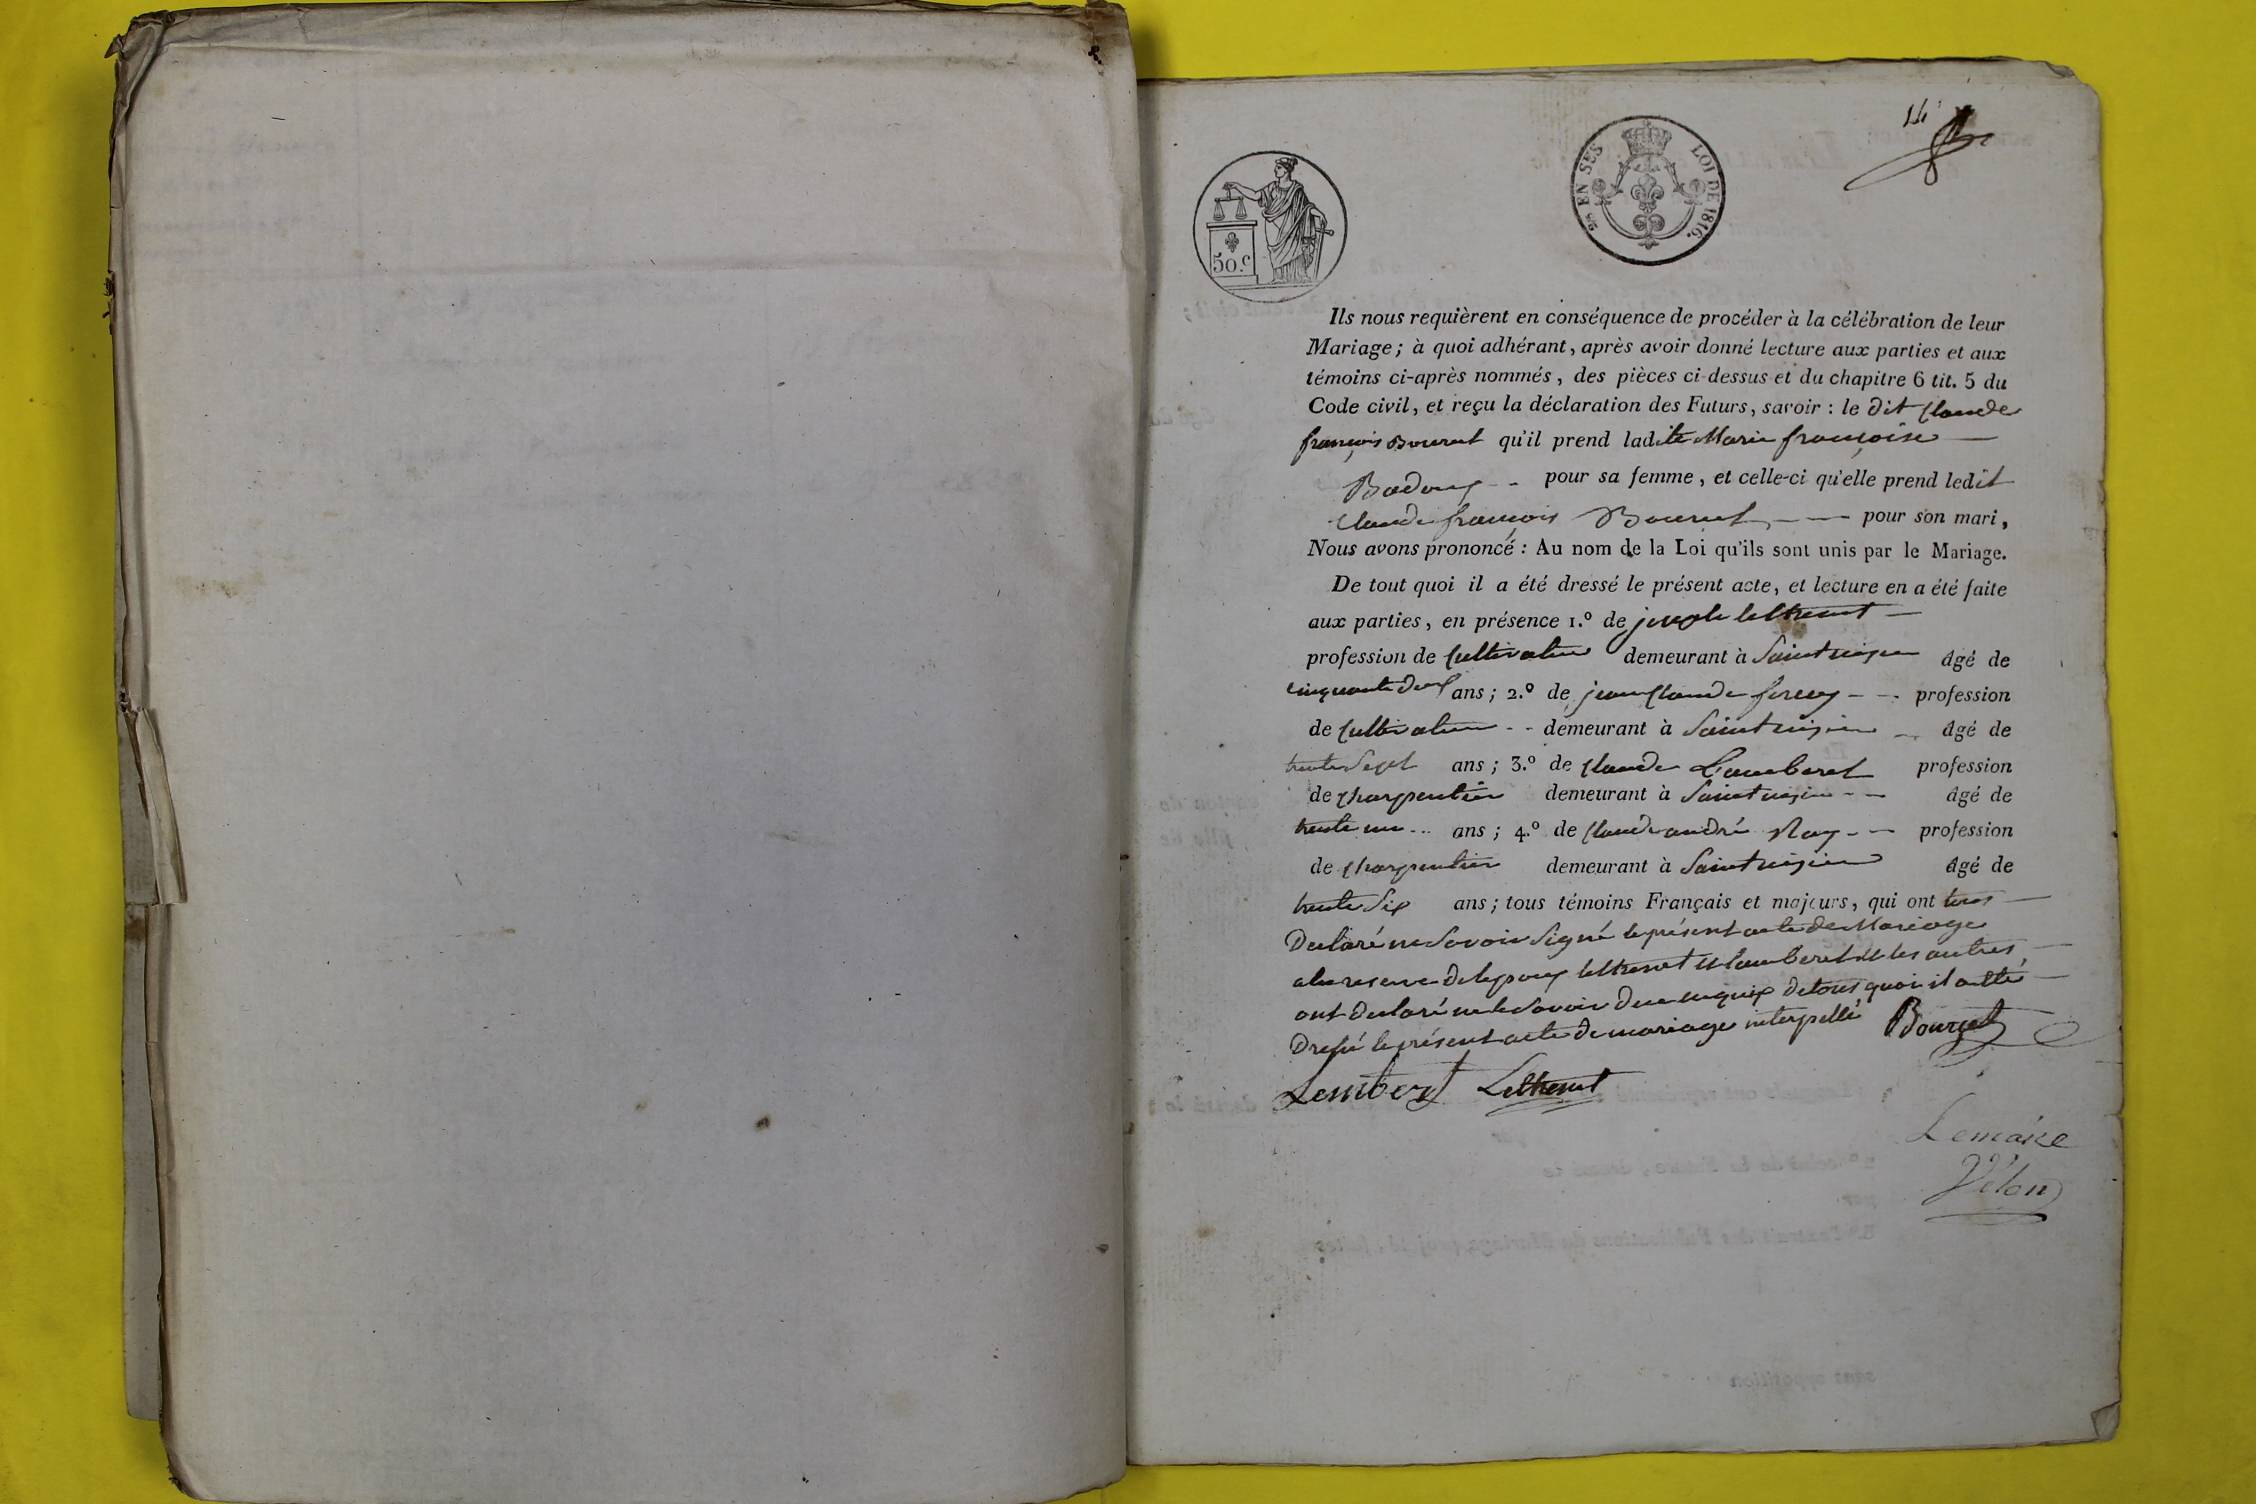 14
50.c
2.mes EN SUS LOI DE 1816.
Ils nous requièrent en conséquence de procéder à la célébration de leur
Mariage ; à quoi adhérant, après avoir donné lecture aux parties et aux
témoins ci-après nommés, des pièces ci-dessus et du chapitre 6 tit. 5 du
Code civil, et reçu la déclaration des Futurs, savoir : le dit Claude
françois Bourcet qu'il prend ladite Marie françoise
Badouy pour sa femme, et celle-ci qu'elle prend ledit
Claude françois Bourcet pour son mari,
Nous avons prononcé : Au nom de la Loi qu'ils sont unis par le Mariage.
De tout quoi il a été dressé le présent acte, et lecture en a été faite
aux parties, en présence 1.º de joseph lethenet
profession de Cultivateur demeurant à Saint âgé de
cinquante deux ans ; 2.º de jean Claude profession
de Cultivateur demeurant à Saint âgé de
trente Sept ans ; 3.º de Claude Lamberet profession
de Charpentier demeurant à Saint âgé de
trente un ans ; 4.º de Claude andré Ray profession
de Charpentier demeurant à Saint âgé de
trente Six ans ; tous témoins Français et majeurs, qui ont tous
Declaré ne Savoir Signé le présent acte de Mariage
a la reserve de lepoux lethenet et lamberet et les autres
ont declaré ne le Savoir de ce enquix de tous quoi il a été
Dressé le présent acte de mariage interpellé Bourcet
Lemberet Lethenet
Lemaire
Vélon